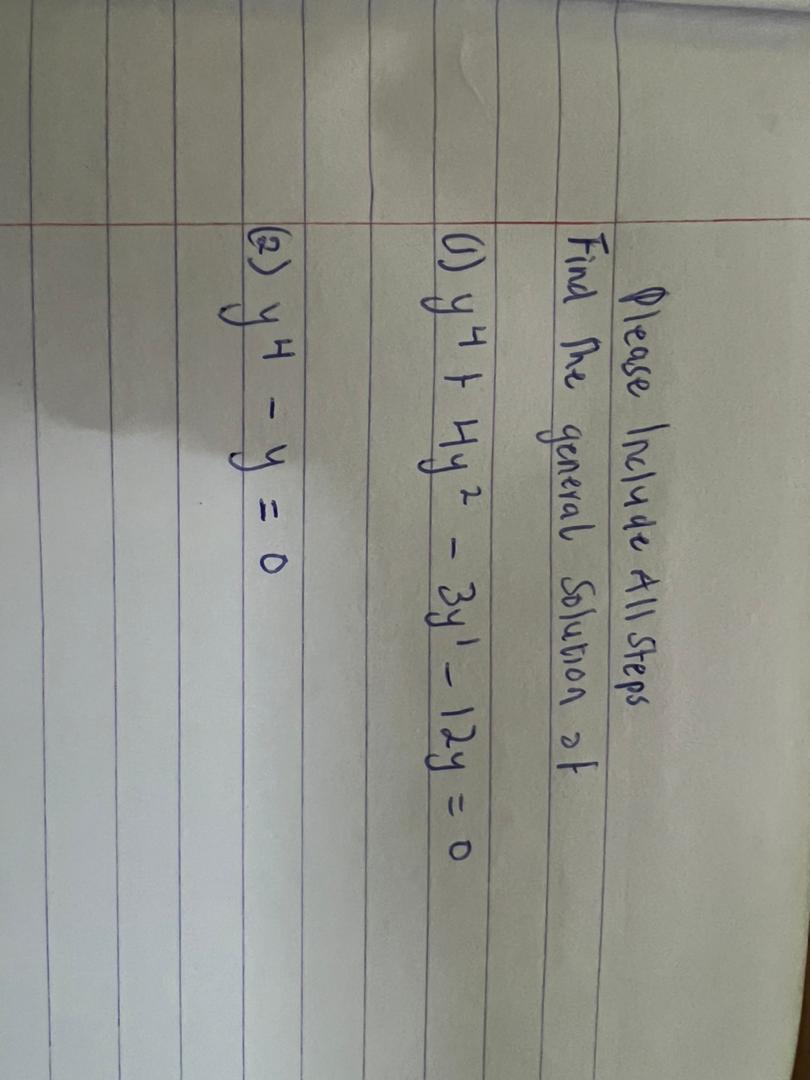 Please Include All Steps
Find the general solution of
(1) y⁴ + 4y² - 3y' - 12y = 0
(2) y⁴ - y = 0